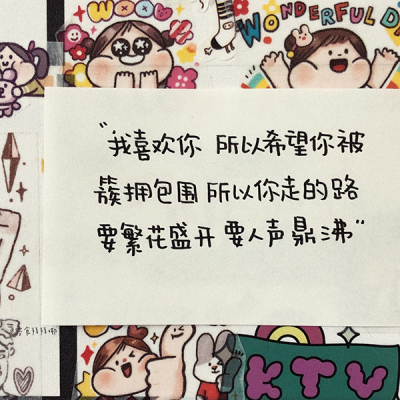 WOOW
WONDERFUL D
"我喜欢你 所以希望你被
簇拥包围 所以你走的路
要繁花盛开 要人声鼎沸"
KTV